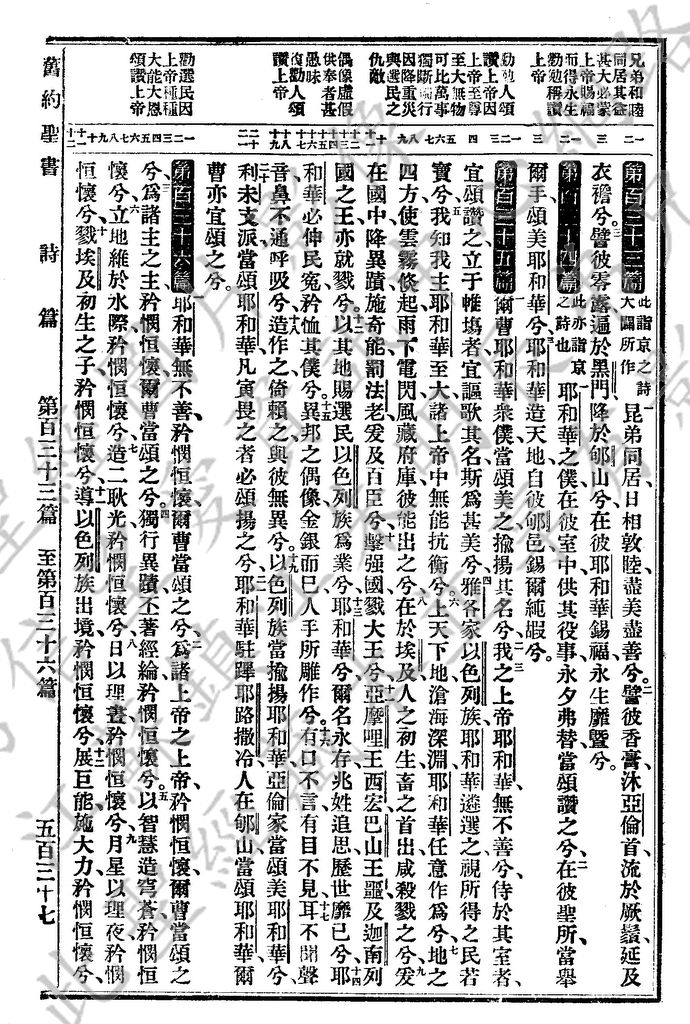 兄弟和睦
同居其益
甚大必蒙
上帝賜福
而得永生
勸勉稱讚
上帝
勸勉人頌
讚上帝因
上帝至尊
至大無物
可比萬事
獨斷獨行
因降重災
與選民之
仇敵
偶像虛假
供奉者甚
愚昧
復勸人頌
讚上帝
勸選民因
上帝種種
大能大恩
頌讚上帝
第百三十三篇 此詣京之詩大闢所作 昆弟同居日相敦睦盡美盡善兮譬彼香膏沐亞倫首流於厥鬚延及
衣襜兮譬彼零露遍於黑門降於郇山兮在彼耶和華錫福永生靡曁兮
第百三十四篇 此亦詣京之詩也 耶和華之僕在彼室中供其役事永夕弗替當頌讚之兮在彼聖所當舉
爾手頌美耶和華兮耶和華造天地自彼郇邑錫爾純嘏兮
第百三十五篇 爾曹耶和華衆僕當頌美之揄揚其名兮我之上帝耶和華無不善兮侍於其室者
宜頌讚之立于帷塲者宜謳歌其名斯爲甚美兮雅各家以色列族耶和華遴選之視所得之民若
寶兮我知我主耶和華至大諸上帝中無能抗衡兮上天下地滄海深淵耶和華任意作爲兮地之
四方使雲霧倐起雨下電閃風藏府庫彼能出之兮在於埃及人之初生畜之首出咸殺戮之兮爰
在國中降異蹟施奇能罰法老爰及百臣兮擊強國戮大王兮亞摩哩王西宏巴山王噩及迦南列
國之王亦就戮兮以其地賜選民以色列族爲業兮耶和華兮爾名永存兆姓追思歷世靡已兮耶
和華必伸民寃矜恤其僕兮異邦之偶像金銀而巳人手所雕作兮有口不言有目不見耳不聞聲
音鼻不通呼吸兮造作之倚賴之與彼無異兮以色列族當揄揚耶和華亞倫家當頌美耶和華兮
利未支派當頌耶和華凡寅畏之者必頌揚之兮耶和華駐蹕耶路撒冷人在郇山當頌耶和華爾
曹亦宜頌之兮
第百三十六篇 耶和華無不善矜憫恒懷爾曹當頌之兮爲諸上帝之上帝矜憫恒懷爾曹當頌之
兮爲諸主之主矜憫恒懷爾曹當頌之兮獨行異蹟丕著經綸矜憫恒懷兮以智慧造穹蒼矜憫恒
懷兮立地維於水際矜憫恒懷兮造二耿光矜憫恒懷兮日以理晝矜憫恒懷兮月星以理夜矜憫
恒懷兮戮埃及初生之子矜憫恒懷兮導以色列族出境矜憫恒懷兮展巨能施大力矜憫恒懷兮
舊約聖書 詩篇 第百三十三篇 至第百三十六篇 五百三十七